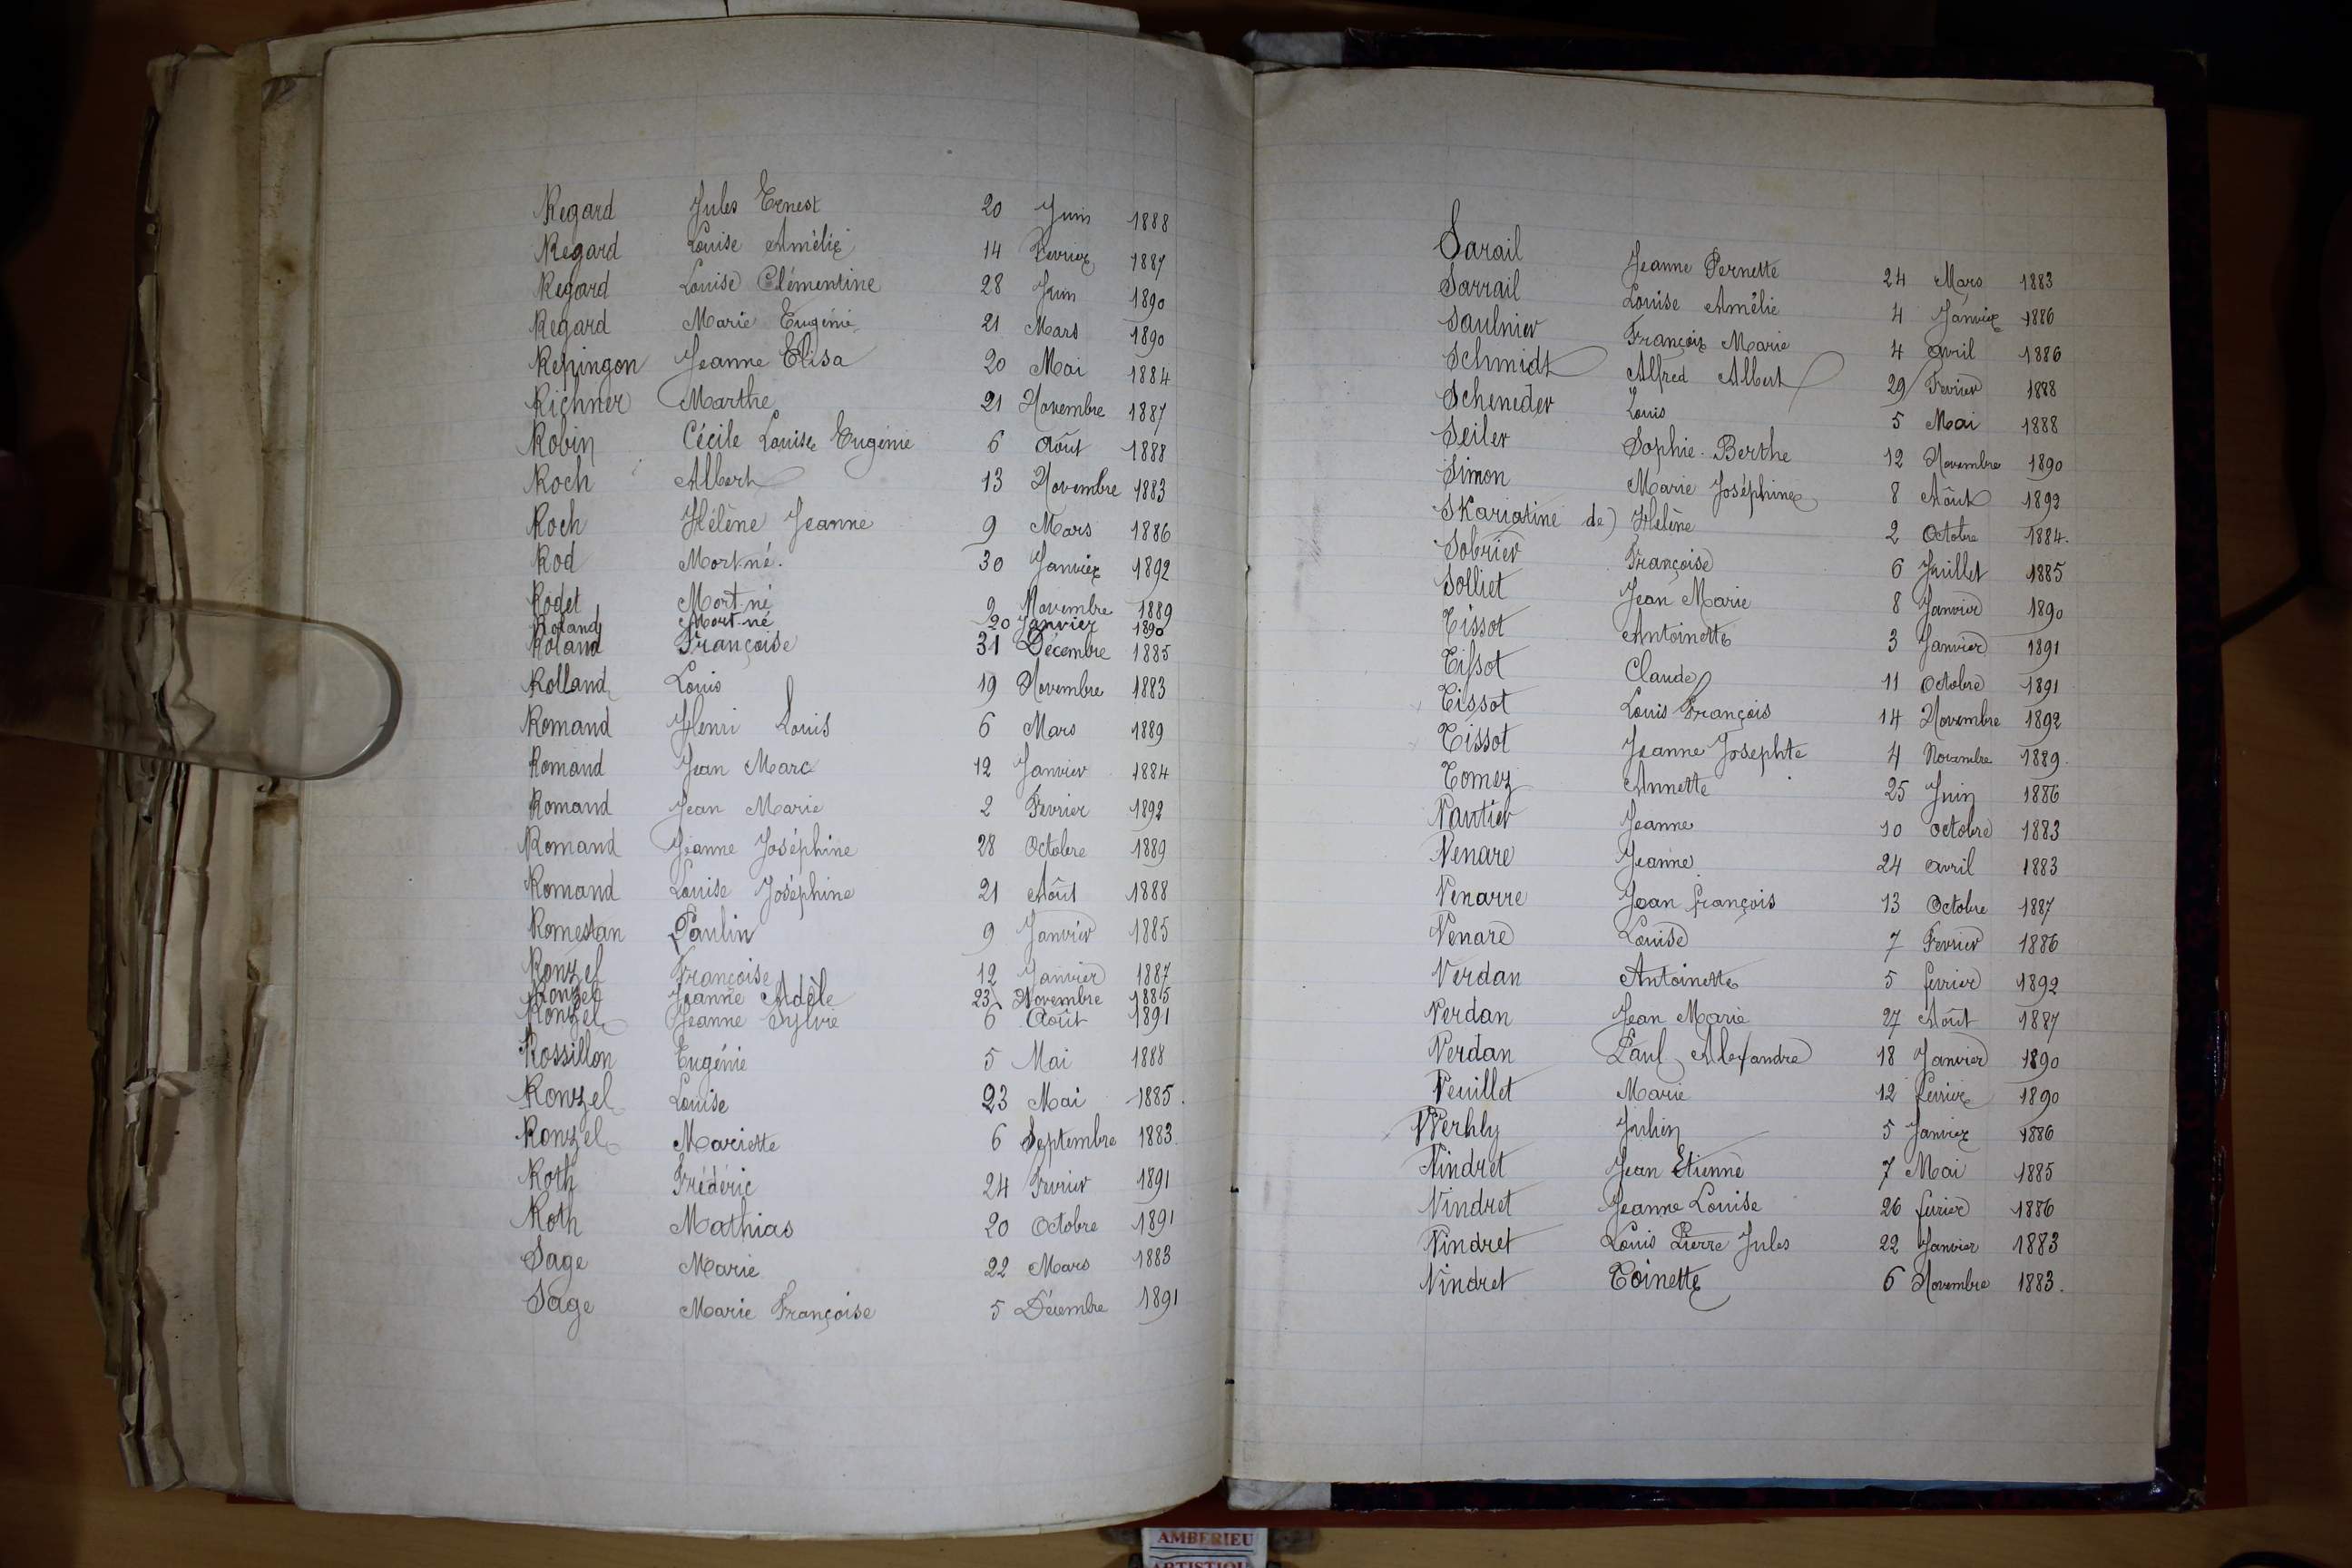 Regard Jules Ernest 20 Juin 1888
Regard Louise Amélie 14 Fevrier 1887
Regard Louise Clémentine 28 Juin 1890
Regard Marie Eugénie 21 Mars 1890
Repingon Jeanne Elisa 20 Mai 1884
Richner Marthe 21 Novembre 1887
Robin Cécile Louise Eugénie 6 Août 1888
Roch Albert 13 Novembre 1883
Roch Hélène Jeanne 9 Mars 1886
Rod Mort-né. 30 Janvier 1892
Rodet Mort-né 9 Novembre 1889
Roland Mort-né 20 Janvier 1890
Roland Françoise 31 Décembre 1885
Rolland Louis 19 Novembre 1883
Romand Henri Louis 6 Mars 1889
Romand Jean Marc 12 Janvier 1884
Romand Jean Marie 2 Fevrier 1892
Romand Jeanne Joséphine 28 Octobre 1889
Romand Louise Joséphine 21 Août 1888
Romestan Paulin 9 Janvier 1885
Ronzel Françoise 12 Janvier 1887
Ronzel Jeanne Adèle 23 Novembre 1885
Ronzel Jeanne Sylvie 6 Août 1891
Rossillon Eugénie 5 Mai 1888
Ronzel Louise 23 Mai 1885.
Ronzel Mariette 6 Septembre 1883.
Roth Frédéric 24 Fevrier 1891
Roth Mathias 20 Octobre 1891
Sage Marie 22 Mars 1883
Sage Marie Françoise 5 Décembre 1891
Sarail Jeanne Pernette 24 Mars 1883
Sarrail Louise Amélie 4 Janvier 1886
Saulnier François Marie 4 avril 1886
Schmidt Alfred Albert 29 Fevrier 1888
Scheneder Louis 5 Mai 1888
Seiler Sophie Berthe 12 Novembre 1890
Simon Marie Joséphine 8 Août 1892
SKariatine de) Hélène 2 Octobre 1884.
Sobrier Françoise 6 Juillet 1885
Solliet Jean Marie 8 Janvier 1890
Tissot Antoinette 3 Janvier 1891
Tissot Claude 11 Octobre 1891
Tissot Louis François 14 Novembre 1892
Tissot Jeanne Josephte 4 Novembre 1889.
Tomez Annette 25 Juin 1886
Vautier Jeanne 10 octobre 1883
Venare Jeanne 24 avril 1883
Venarre Jean françois 13 Octobre 1887
Venare Louise 7 Fevrier 1886
Verdan Antoinette 5 fevrier 1892
Verdan Jean Marie 27 Août 1887
Verdan Paul Alexandre 18 Janvier 1890
Veuillet Marie 12 fevrier 1890
Werhly Julien 5 Janvier 1886
Vindret Jean Etienne 7 Mai 1885
Vindret Jeanne Louise 26 fevrier 1886
Vindret Louis Pierre Jules 22 Janvier 1883
Vindret Toinette 6 Novembre 1883.
AMBERIEU
ARTISTIQU